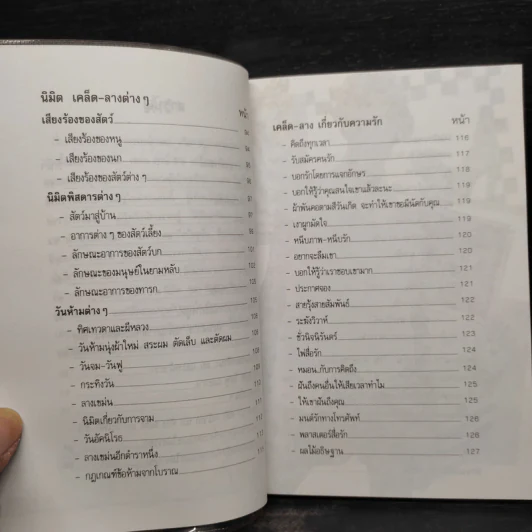 นิมิต เคล็ด-ลางต่าง ๆ
หน้า
เสียงร้องของสัตว์ 94
- เสียงร้องของหนู
- เสียงร้องของนก
- เสียงร้องของสัตว์ต่าง ๆ
นิมิตพิสดารต่าง ๆ
- สัตว์มาสู่บ้าน
- อาการต่าง ๆ ของสัตว์เลี้ยง
- ลักษณะอาการของสัตว์บก 101
- ลักษณะของมนุษย์ในยามหลับ
- ลักษณะอาการของทารก
วันห้ามต่าง ๆ
- ทิศเทวดาและผีหลวง
- วันห้ามนุ่งผ้าใหม่ สระผม ตัดเล็บ และตัดผม
- วันจม-วันฟู
- กระทิงวัน
- ลางเขม่น
- นิมิตเกี่ยวกับการจาม
- วันอัคนิโรธ
- ลางเขม่นอีกตำราหนึ่ง
- กฎเกณฑ์ข้อห้ามจากโบราณ
เคล็ด-ลาง เกี่ยวกับความรัก หน้า
- คิดถึงทุกเวลา 116
- รับสมัครคนรัก 117
- บอกรักโดยการแจกอักษร 118
- บอกให้รู้ว่าคุณสนใจเขาแล้วละนะ 118
- ผ้าพันคอตามสีวันเกิด จะทำให้เขาขอมีนัดกับคุณ 119
- เงาผูกมัดใจ 119
- หนีบภาพ-หนีบรัก 120
- อยากจะลืมเขา 120
- บอกให้รู้ว่าเราชอบเขามาก 121
- ประกาศจอง 121
- สายรุ้งสายสัมพันธ์ 122
- ระฆังวิวาห์ 122
- ชั่วนิจนิรันดร์ 123
- ไฟสื่อรัก 124
- หมอน..กับการคิดถึง 124
- ฝันถึงคนอื่นให้เสียเวลาทำไม 125
- ให้เขาฝันถึงคุณ 125
- มนต์รักทางโทรศัพท์ 126
- พลาสเตอร์สื่อรัก 126
- ผลไม้อธิษฐาน 127